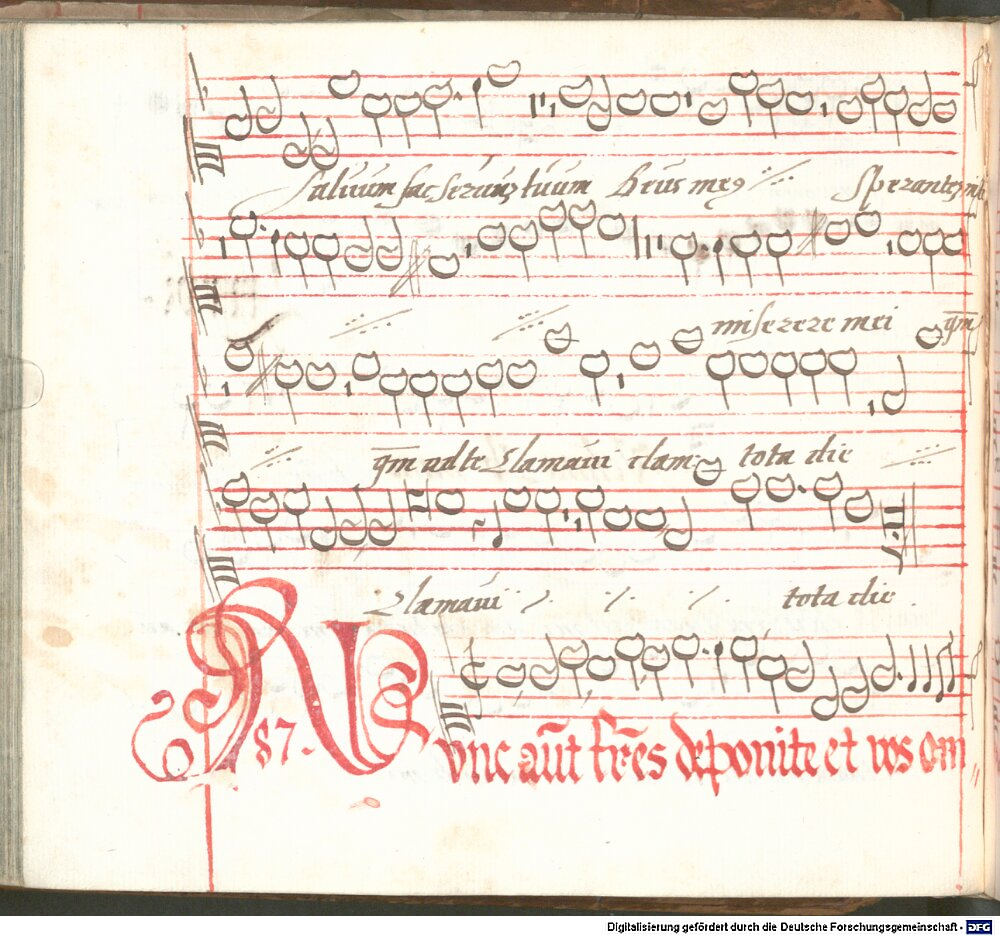 saluum fac seruuȝ tuum Deus meꝯ ·/· speranteȝ
·/· ·/· miserere mei qm̄
·/· qm̄ ad te Clamaui clam tota die ·/·
Clamaui ·/· ·/· ·/· tota die
87 Nvnc aūt fr̄es deponite et vos om
Digitalisierung gefördert durch die Deutsche Forschungsgemeinschaft - DFG